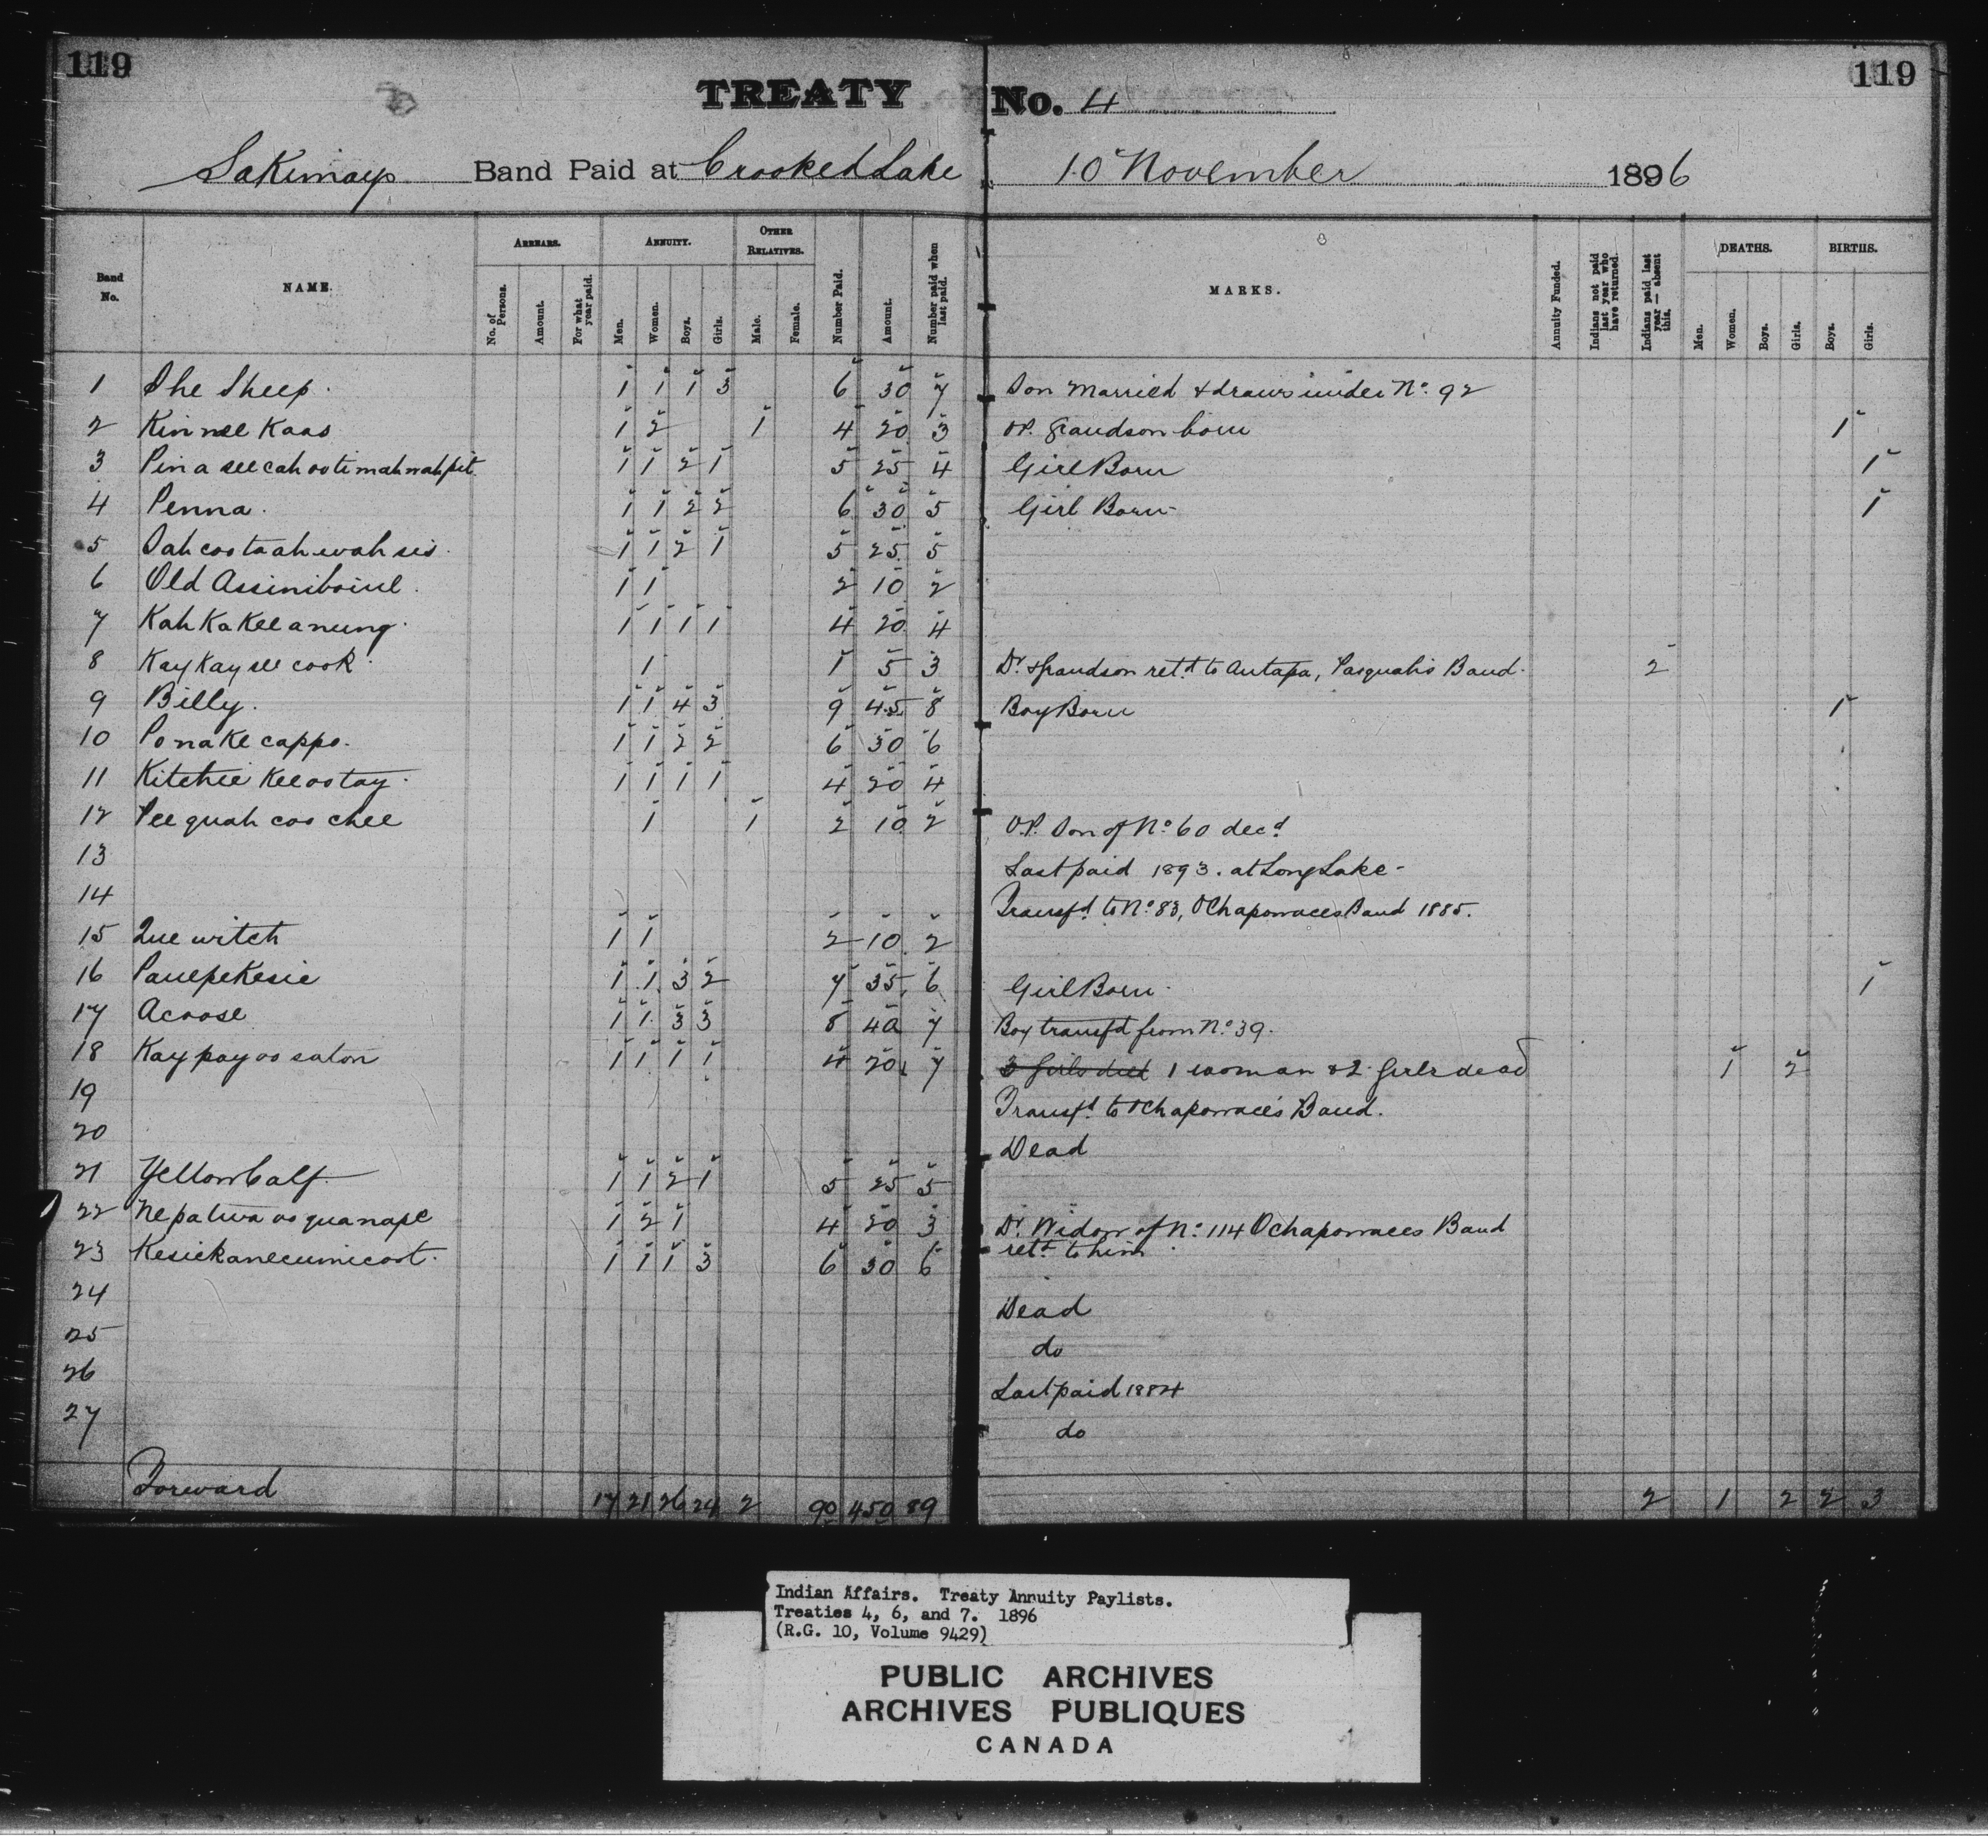 119
119
TREATY No. 4
Sakimays Band Paid at Crooked Lake 10 November 1896
Band No. NAME. ARREARS. No. of Persons. Amount. For what year paid. ANNUITY. Men. Women. Boys. Girls. OTHER RELATIVES. Male. Female. Number Paid. Amount. Number paid when last paid. MARKS. Annuity Funded. Indians not paid last year who have returned. Indians paid last year — absent this. DEATHS. Men. Women. Boys. Girls. BIRTHS. Boys. Girls.
1 The Sheep. 1 1 1 3 6 30 7 Son Married & draws under No. 92
2 Kin nee Kaas 1 2 1 4 20 3 OP. Grandson born 1
3 Pin a see cah oo ti mah wah pit 1 1 2 1 5 25 4 Girl Born 1
4 Penna. 1 1 2 2 6 30 5 Girl Born 1
5 Sah coo ta ah wah sis. 1 1 2 1 5 25 5
6 Old Assiniboine. 1 1 2 10 2
7 Kah Ka Kee a nung. 1 1 1 1 4 20 4
8 Kay Kay see cook. 1 1 5 3 Dr. & Grandson retd. to Autapa, Pasquah's Band. 2
9 Billy. 1 1 4 3 9 45 8 Boy Born 1
10 Po na Ke cappo. 1 1 2 2 6 30 6
11 Kitchee Kee oo tay. 1 1 1 1 4 20 4
12 Pee quah coo chee 1 1 2 10 2 O.P. Son of No. 60 decd.
13 Last paid 1893. at Long Lake
14 Transfd. to No. 83, OChapowaces Band 1885.
15 Que witch 1 1 2 10 2
16 Paulpekesie 1 1 3 2 7 35 6 Girl Born. 1
17 Acoose 1 1 3 3 8 40 7 Boy transfd from No. 39.
18 Kay pay oo saton 1 1 1 1 4 20 7 3 Girls died 1 woman & 2 Girls dead 1 2
19 Transfd. to OChapowace's Band.
20 Dead
21 Yellow Calf. 1 1 2 1 5 25 5
22 Nepatwa oo qua nape 1 2 1 4 20 3 Dr. Widow of No. 114 Ochapowaces Band
retd. to him
23 Kesickanecumicoot. 1 1 1 3 6 30 6
24 Dead
25 do
26 Last paid 1884
27 do
Forward 17 21 26 24 2 90 450 89 2 1 2 2 3
Indian Affairs. Treaty Annuity Paylists.
Treaties 4, 6, and 7. 1896
(R.G. 10, Volume 9429)
PUBLIC ARCHIVES
ARCHIVES PUBLIQUES
CANADA